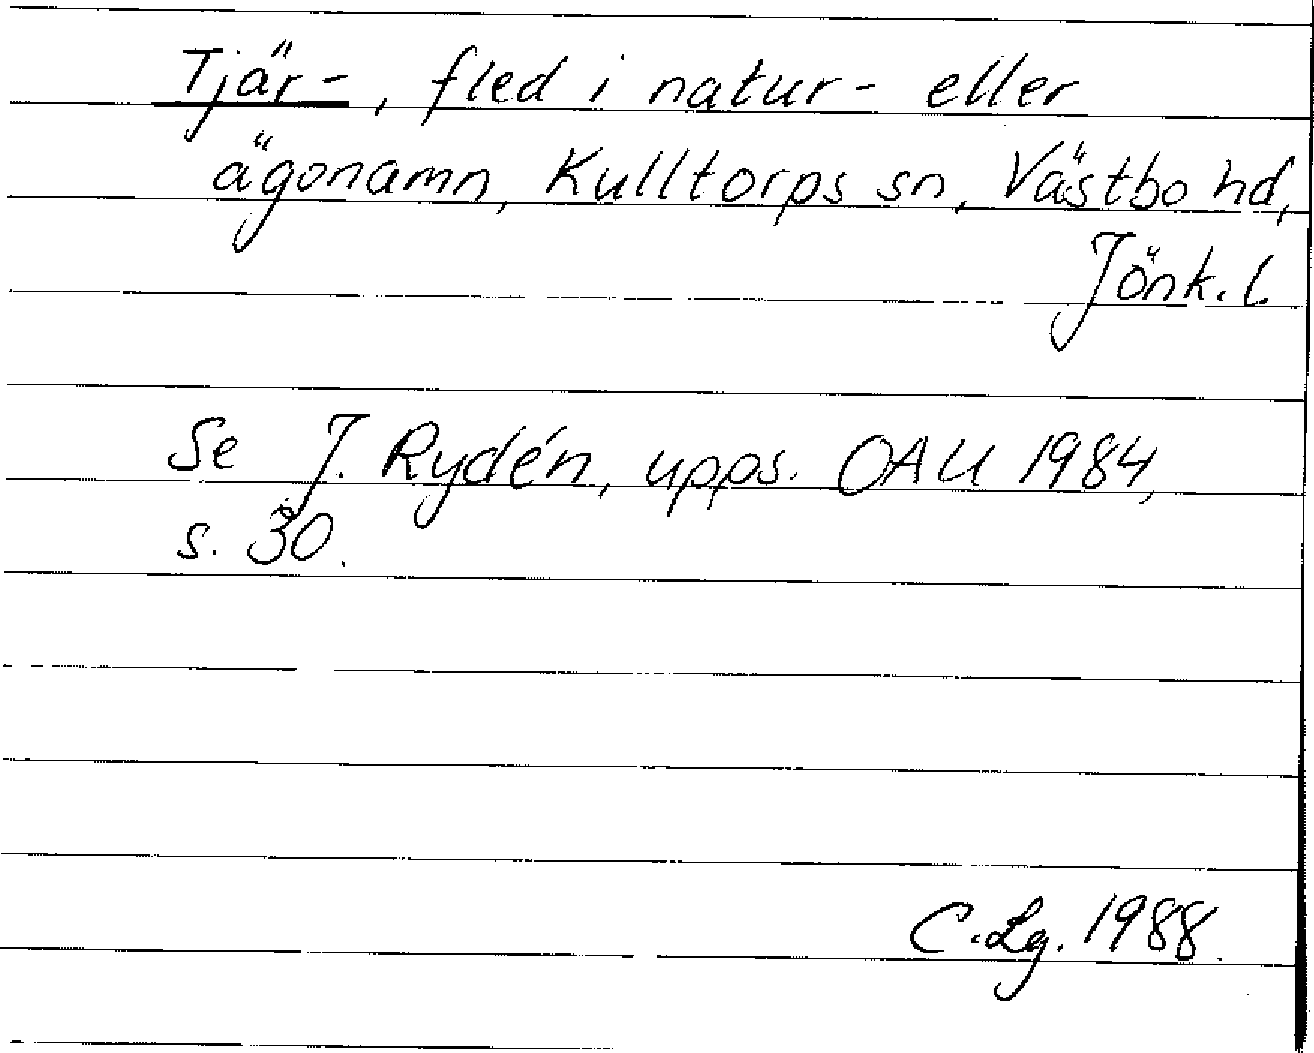 Tjär-, fled i natur- eller
ägonamn, Kulltorps sn, Västbo hd,
Jönk. l.
Se J. Rydén, upps. OAU 1984,
s. 30.
C. Lg. 1988.